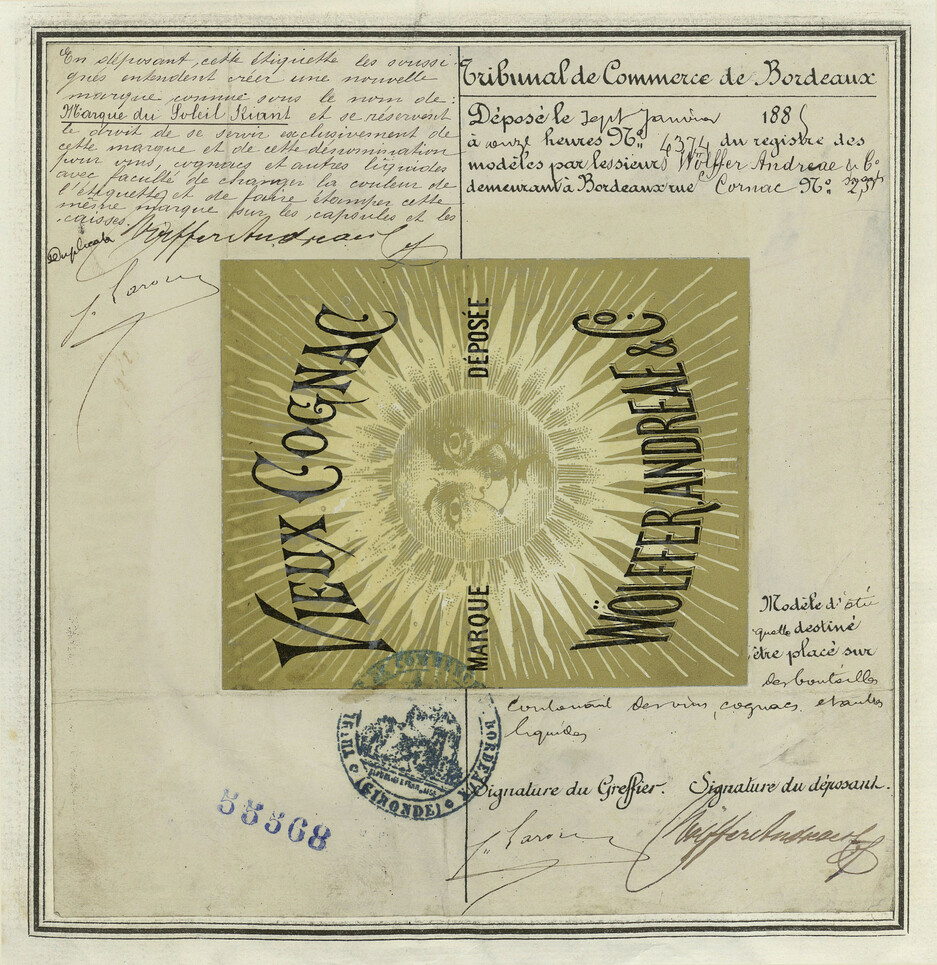 En déposant cette étiquette les soussi-
gnés entendent créer une nouvelle
marque connue sous le nom de:
Marque du Soleil Riant et se réservent
le droit de se servir exclusivement de
cette marque et de cette dénomination
pour vins, cognacs et autres liquides
avec faculté de changer la couleur de
l'étiquette et de faire étamper cette
même marque sur les capsules et les
caisses.
Duplicata Wölffer Andreae & Co
Tribunal de Commerce de Bordeaux
Déposé le Sept Janvier 1885
à onze heures No. 4374 du registre des
modèles par les sieurs Wölffer Andreae & Co
demeurant à Bordeaux rue Cornac No. 23
VIEUX COGNAC
MARQUE DÉPOSÉE
WÖLFFER, ANDREAE & Co.
Modèle d'éti
quette destiné
être placé sur
des bouteilles
contenant des vins, cognacs et autres
liquides
DE COMMERCE
BORDEAUX
(GIRONDE)
TRIBU
55368
Signature du Greffier. Signature du déposant.
Wölffer Andreae & Co